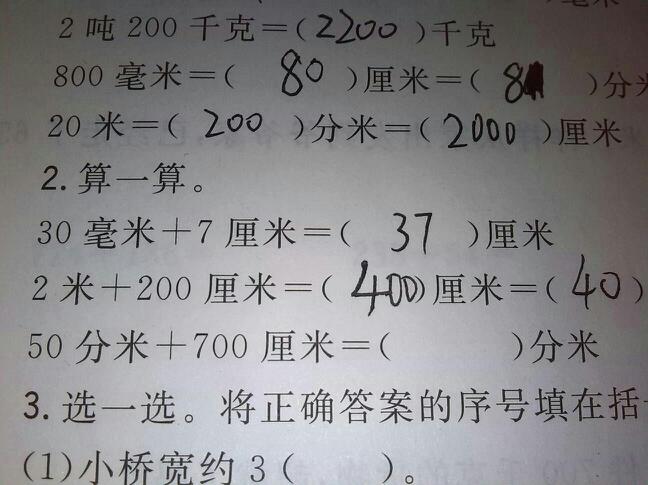 2 吨 200 千克=(2200)千克
800 毫米=( 80 )厘米=( 8 )分米
20 米=( 200 )分米=(2000)厘米
2. 算一算。
30 毫米+7 厘米=( 37 )厘米
2 米+200 厘米=( 400)厘米=(40)
50 分米+700 厘米=( )分米
3. 选一选。将正确答案的序号填在括
(1)小桥宽约 3( )。